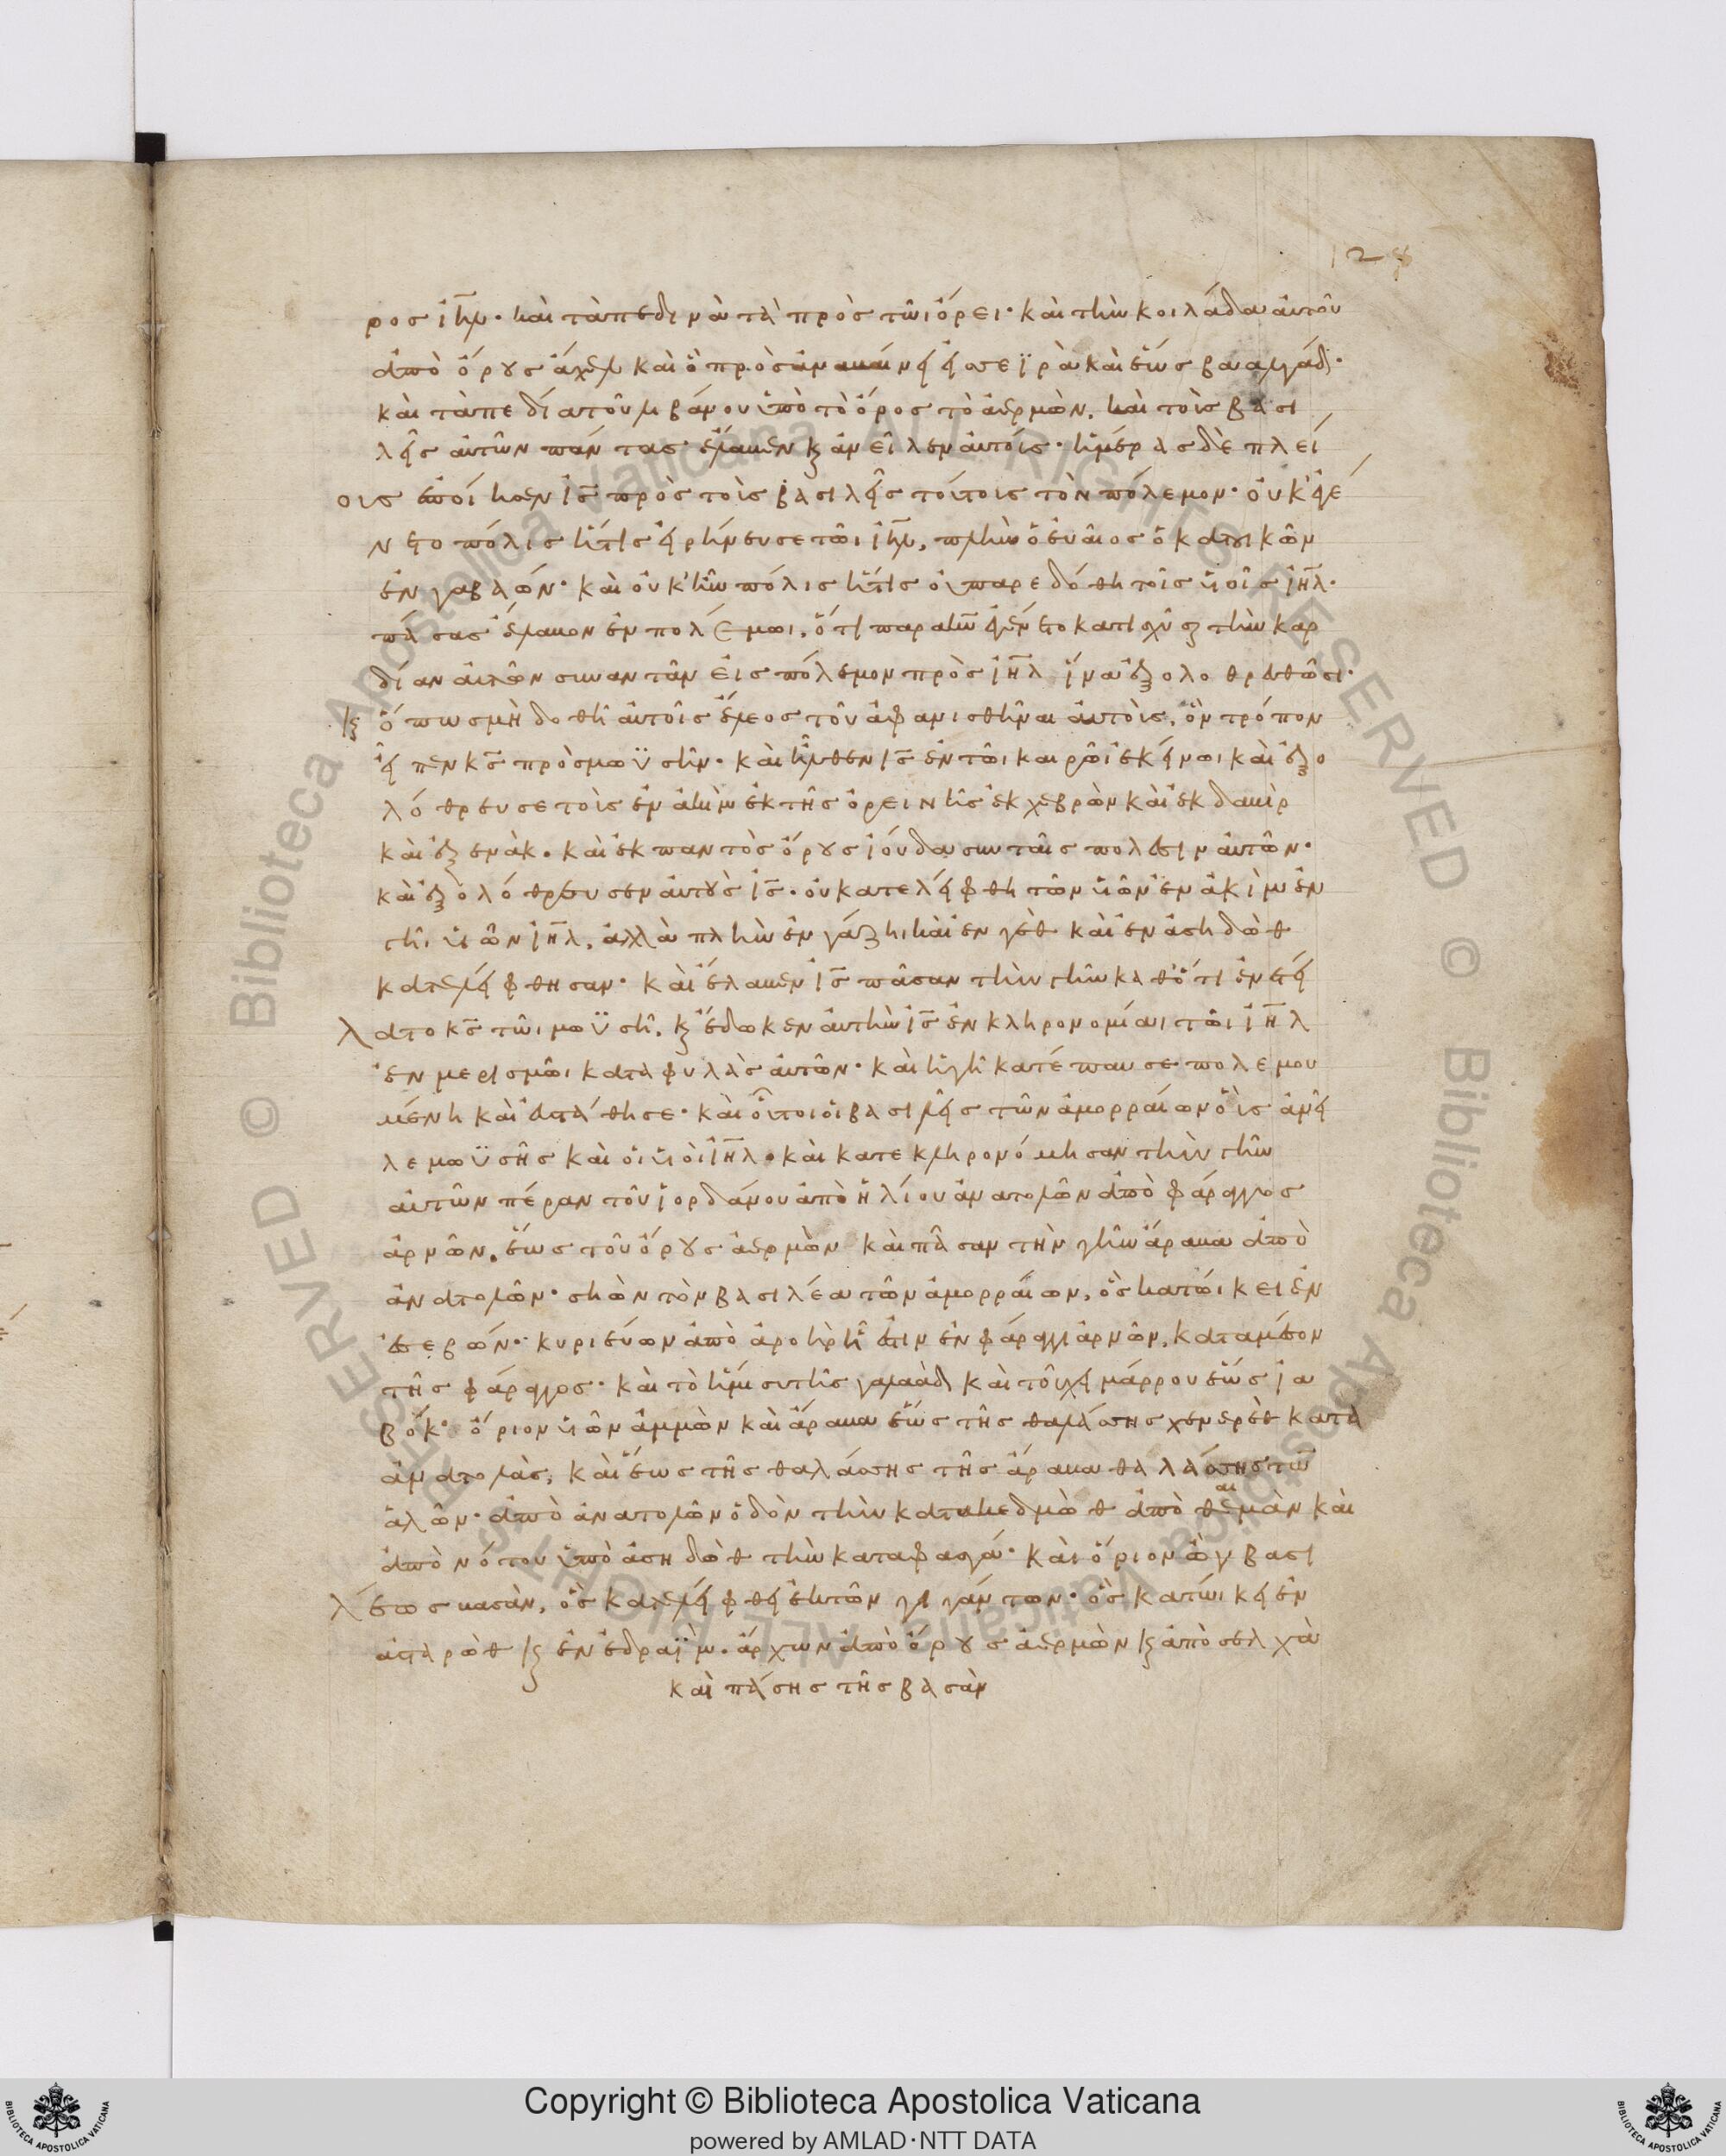 128
ρος ἰη̅λ· καὶ τὰ πεδινὰ τὰ πρὸς τῶι ὄρει· καὶ τὴν κοιλάδα αὐτοῦ
ἀπὸ ὄρους ἀχὲλ καὶ ὃ προσαναβαίνει εἰς σεϊρὰ καὶ ἕως βααλγάδ·
καὶ τὰ πεδία τοῦ λιβάνου ὑπὸ τὸ ὄρος τὸ ἀερμὼν. καὶ τοὺς βασι
λεῖς αὐτῶν πάντας ἔλαβεν κ̣ ἀνεῖλεν αὐτούς· ἡμέρας δὲ πλεί
ους ἐποίησεν ἰς̅ πρὸς τοὺς βασιλεῖς τούτους τὸν πόλεμον· οὐκ' ἐγέ
νετο πόλις ἥτις εἰρήνευσε τῶι ἰη̅λ, πλὴν ὁ εὐαῖος ὁ κατοικῶν
ἐν γαβαών· καὶ οὐκ' ἦν πόλις ἥτις οὐ παρεδόθη τοῖς υἱοῖς ἰη̅λ·
πάσας ἔλαβον ἐν πολέμωι. ὅτι παρα κυ̅ ἐγένετο κατισχῦσαι τὴν καρ
δίαν αὐτῶν συναντᾶν εἰς πόλεμον πρὸς ἰη̅λ ἵνα ἐξολοθρευθῶσι·
κ̣ ὅπως μὴ δοθῆ αὐτοῖς ἔλεος τοῦ ἀφανισθῆναι αὐτοὺς, ὃν τρόπον
εἶπεν κς̅ πρὸς μωϋσῆν· καὶ ἦλθεν ἰς̅ ἐν τῶι καιρῶι ἐκείνωι καὶ ἐξο
λόθρευσε τοὺς ἐνακὶμ ἐκ τῆς ὀρεινῆς ἐκ χεβρὼν καὶ ἐκ δαβὶρ
καὶ ἐξ ἐνάκ. καὶ ἐκ παντὸς ὄρους ἰούδα συν ταῖς πολεσιν αὐτῶν·
καὶ ἐξολόθρευσεν αὐτοὺς ἰς̅. οὐ κατελείφθη τῶν υἱῶν ἐνακὶμ ἐν
γῆ υἱῶν ἰη̅λ, ἀλλὰ πλὴν ἐν γάζη καὶ ἐν γὲθ καὶ ἐν ἀσηδὼθ
κατελείφθησαν· καὶ ἔλαβεν ἰς̅ πᾶσαν τὴν γῆν καθότι ἐνετεί
λατο κς̅ τῶι μωϋσῆ. κ̣ ἔδωκεν αὐτὴν ἰς̅ ἐν κληρονομίαι τῶι ἰη̅λ
ἐν μερισμῶι κατὰ φυλὰς αὐτῶν· καὶ ἡ γῆ κατέπαυσε πολεμου
μένη καὶ ἐστάθησε· καὶ οὗτοι οἱ βασιλεῖς τῶν ἀμορραίων οὓς ἀνεῖ
λε μωϋσῆς καὶ οἱ υἱοὶ ἰη̅λ· καὶ κατεκληρονόμησαν τὴν γῆν
αὐτῶν πέραν τοῦ ἰορδάνου ἀπὸ ἡλίου ἀνατολῶν ἀπὸ φάραγγος
ἀρνῶν. ἕως τοῦ ὄρους ἀερμὼν καὶ πᾶσαν τὴν γῆν ἄραβα ἀπὸ
ἀνατολῶν· σηὼν τὸν βασιλέα τῶν ἀμορραίων, ὃς κατώικει ἐν
ἐσεβών· κυριεύων ἀπὸ ἀροὴρ ἥ ἐστιν ἐν φάραγγι ἀρνῶν, κατα μέσον
τῆς φάραγγος· καὶ τὸ ἥμισυ τῆς γαλαὰδ καὶ τοῦ χειμάρρου ἕως ἰα
βόκ· ὅριον υἱῶν ἀμμὼν καὶ ἄραβα ἕως τῆς θαλάσσης χενερὲθ κατὰ
ἀνατολὰς, καὶ ἕως τῆς θαλάσσης τῆς ἄραβα θαλάσσης τῶν
ἁλῶν· ἀπὸ ἀνατολῶν ὁδὸν τὴν κατα ἡεδμὼθ ἀπὸ θαιμὰν καὶ
ἀπὸ νότου ὑπὸ ἀσηδὼθ τὴν κατα φασγά· καὶ ὅριον ὢγ βασι
λέως βασὰν, ὃς κατελείφθη ἐκ τῶν γιγάντων· ὃς κατώικει ἐν
ἀσταρὼθ κ̣ ἐν ἐδραῒμ. ἄρχων ἀπὸ ὄρους ἀερμὼν κ̣ ἀπὸ σελχὰ
καὶ πάσης τῆς βασὰν
Copyright © Biblioteca Apostolica Vaticana
powered by AMLAD·NTT DATA